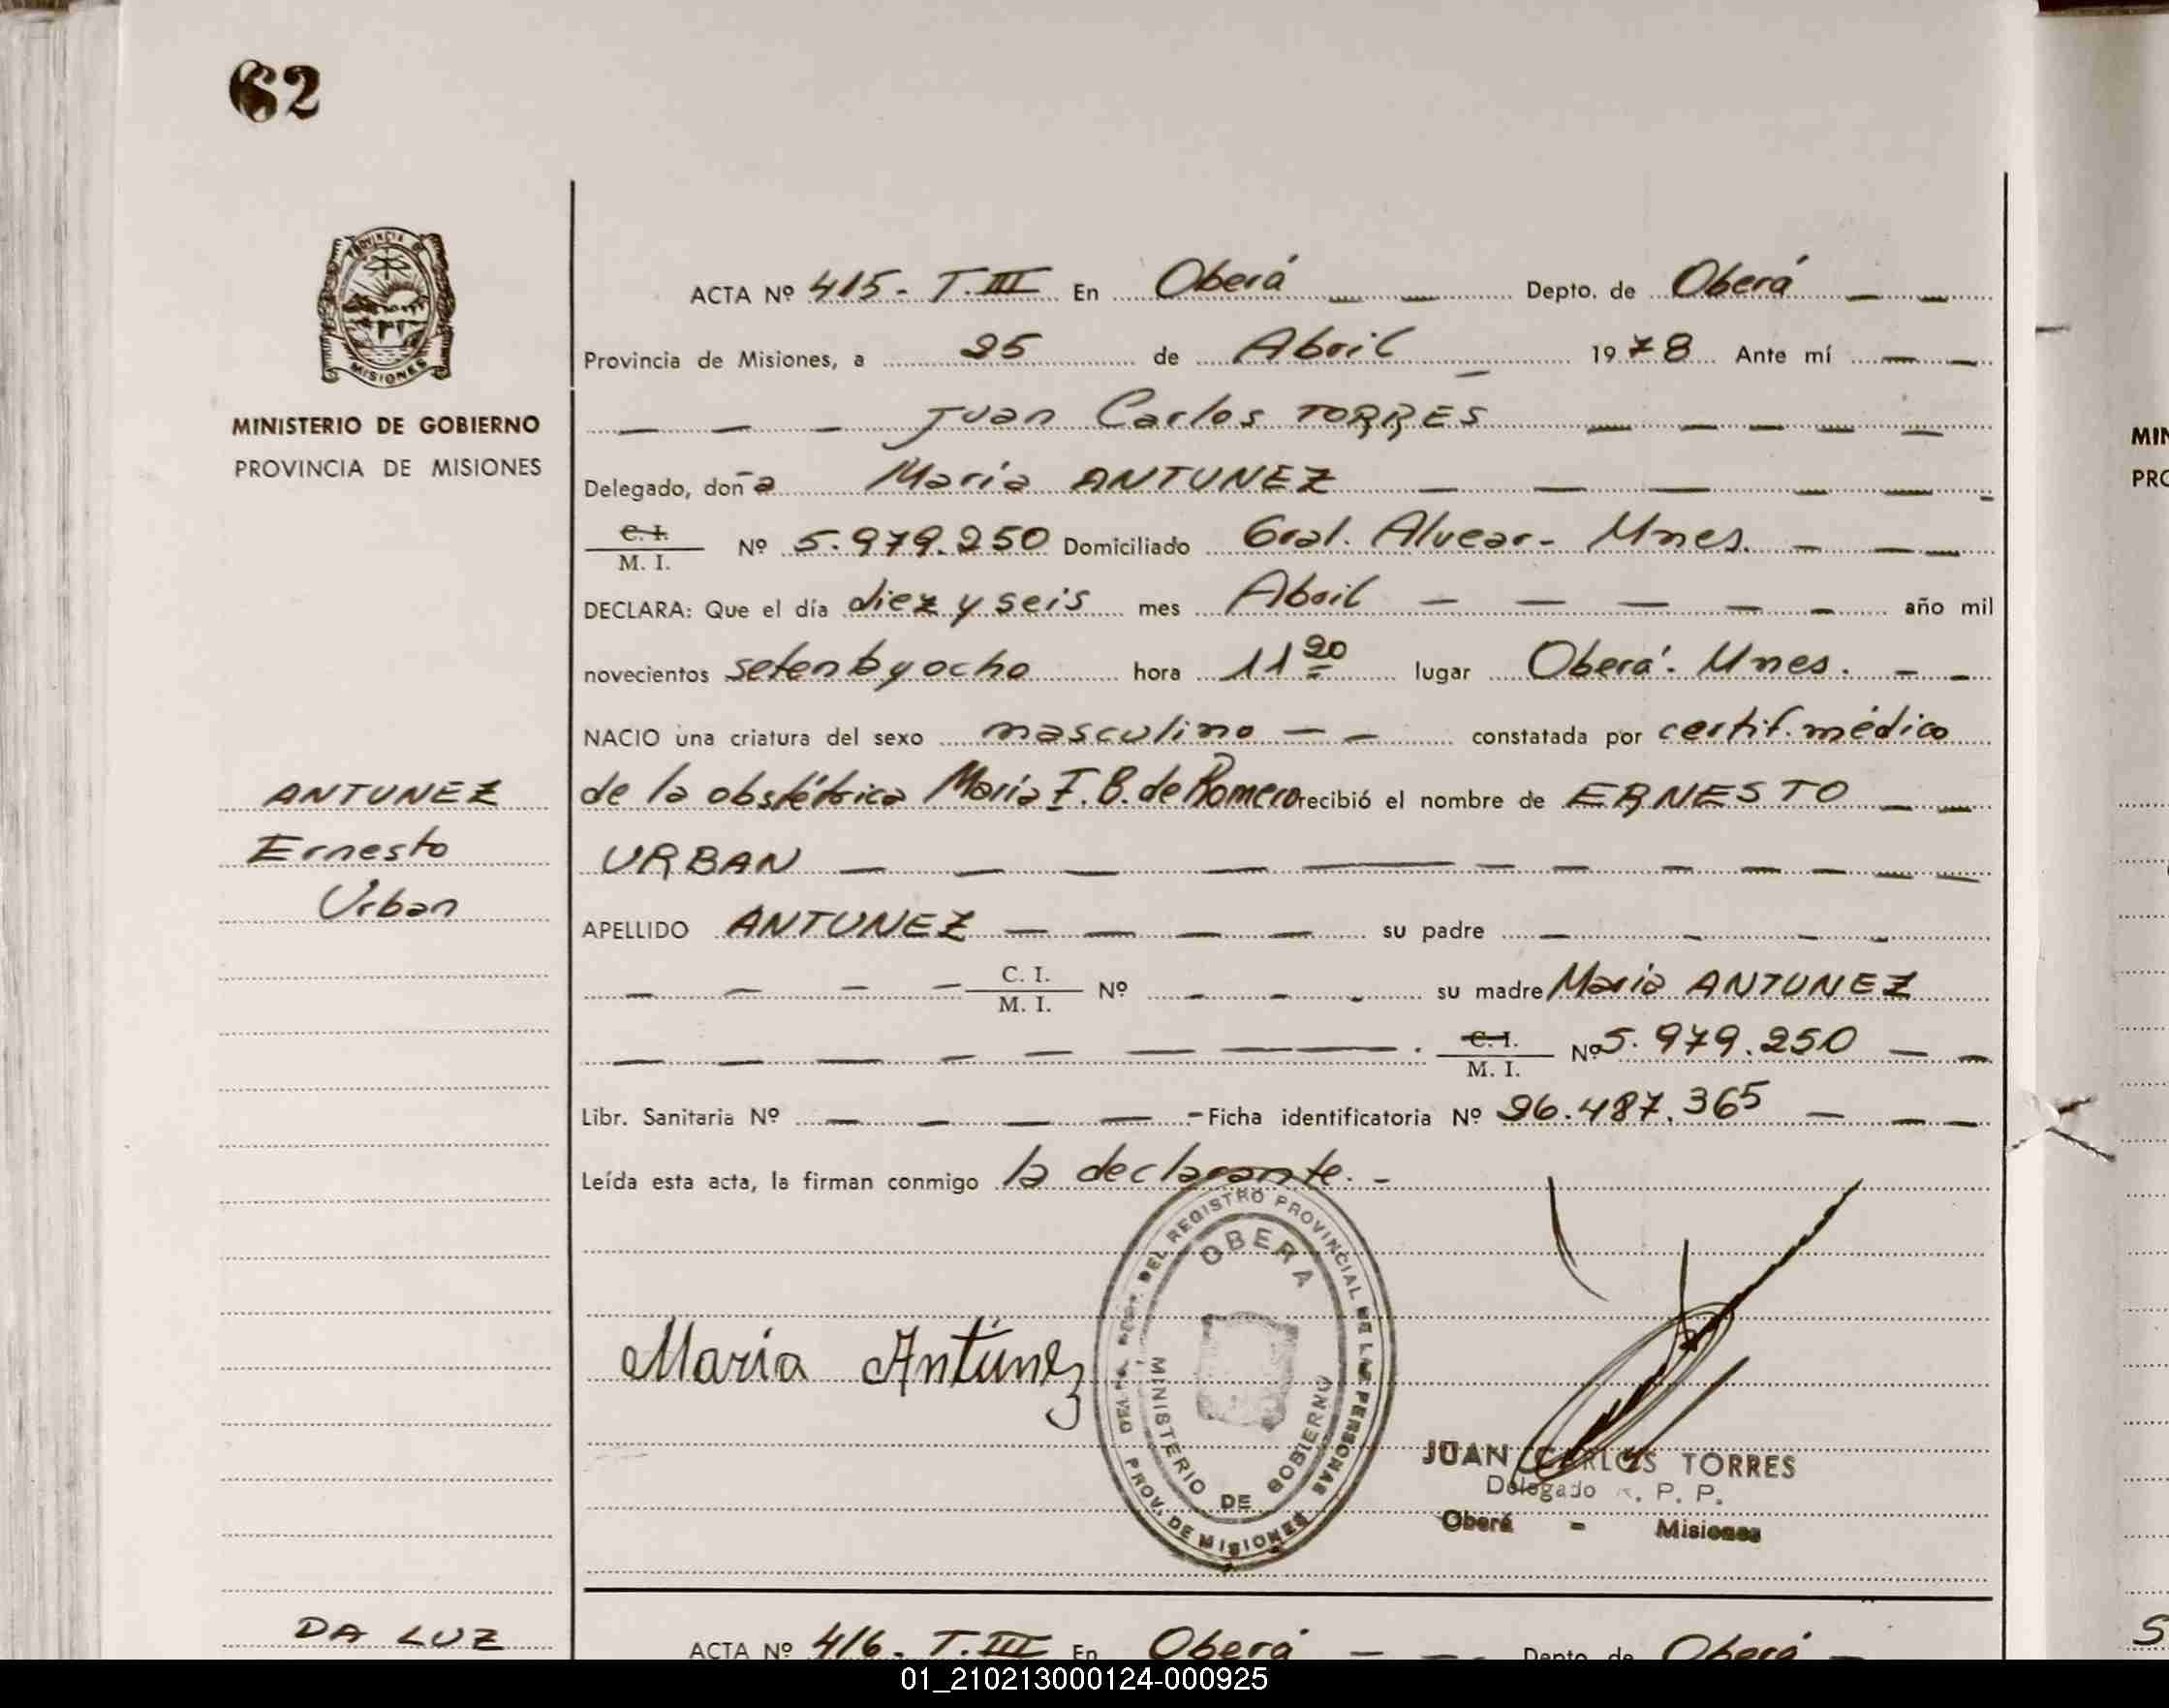 62
PROVINCIA D
MISIONES
MINISTERIO DE GOBIERNO
PROVINCIA DE MISIONES
ANTUNEZ
Ernesto
Urban
DA LUZ
ACTA Nº 415- T.III En Oberá Depto. de Oberá
Provincia de Misiones, a 25 de Abril 1978 Ante mí
Juan Carlos TORRES
Delegado, doña María ANTUNEZ
C.I. / M. I. Nº 5.979.250 Domiciliado Gral. Alvear- Mnes.
DECLARA: Que el día diez y seis mes Abril año mil
novecientos setenta y ocho hora 11 20 lugar Oberá- Mnes.
NACIO una criatura del sexo masculino constatada por certif. médico
de la obstétrica María F. B. de Romero recibió el nombre de ERNESTO
URBAN
APELLIDO ANTUNEZ su padre
C. I. / M. I. Nº su madre María ANTUNEZ
C.I. / M. I. Nº 5.979.250
Libr. Sanitaria Nº Ficha identificatoria Nº 26.487.365
Leída esta acta, la firman conmigo la declarante.-
María Antúnez
DEL REGISTRO PROVINCIAL DE LAS PERSONAS
OBERA
MINISTERIO DE GOBIERNO
PROV. DE MISIONES
JUAN CARLOS TORRES
Delegado R. P. P.
Oberá - Misiones
ACTA Nº 416- T.III En Oberá Depto. de Oberá
MIN
PRO
S
01_210213000124-000925